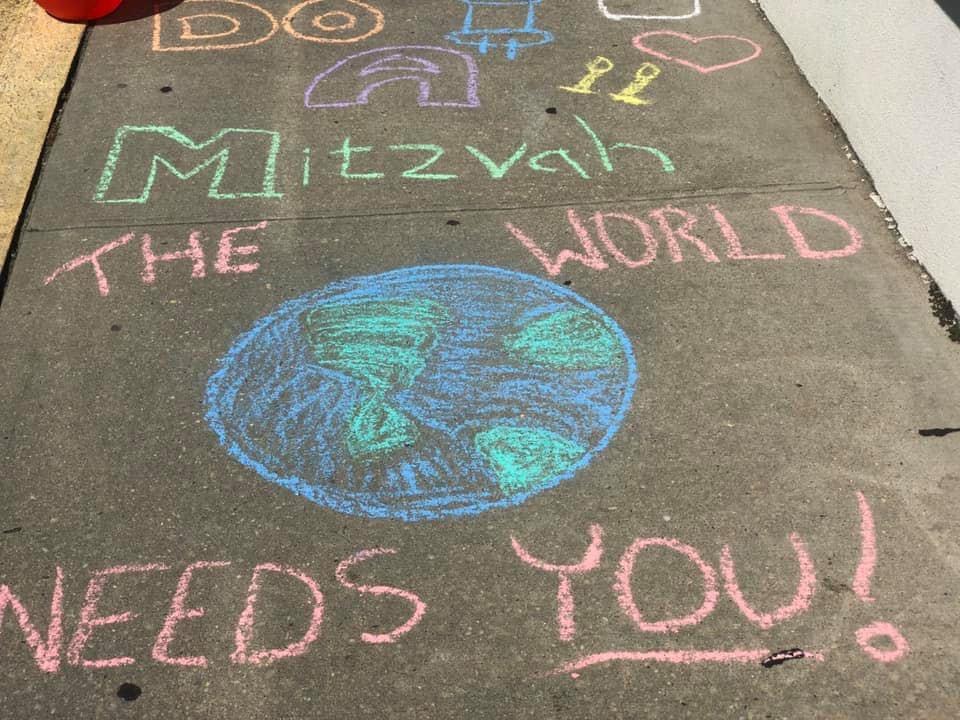 DO
A
Mitzvah
THE WORLD
NEEDS YOU!